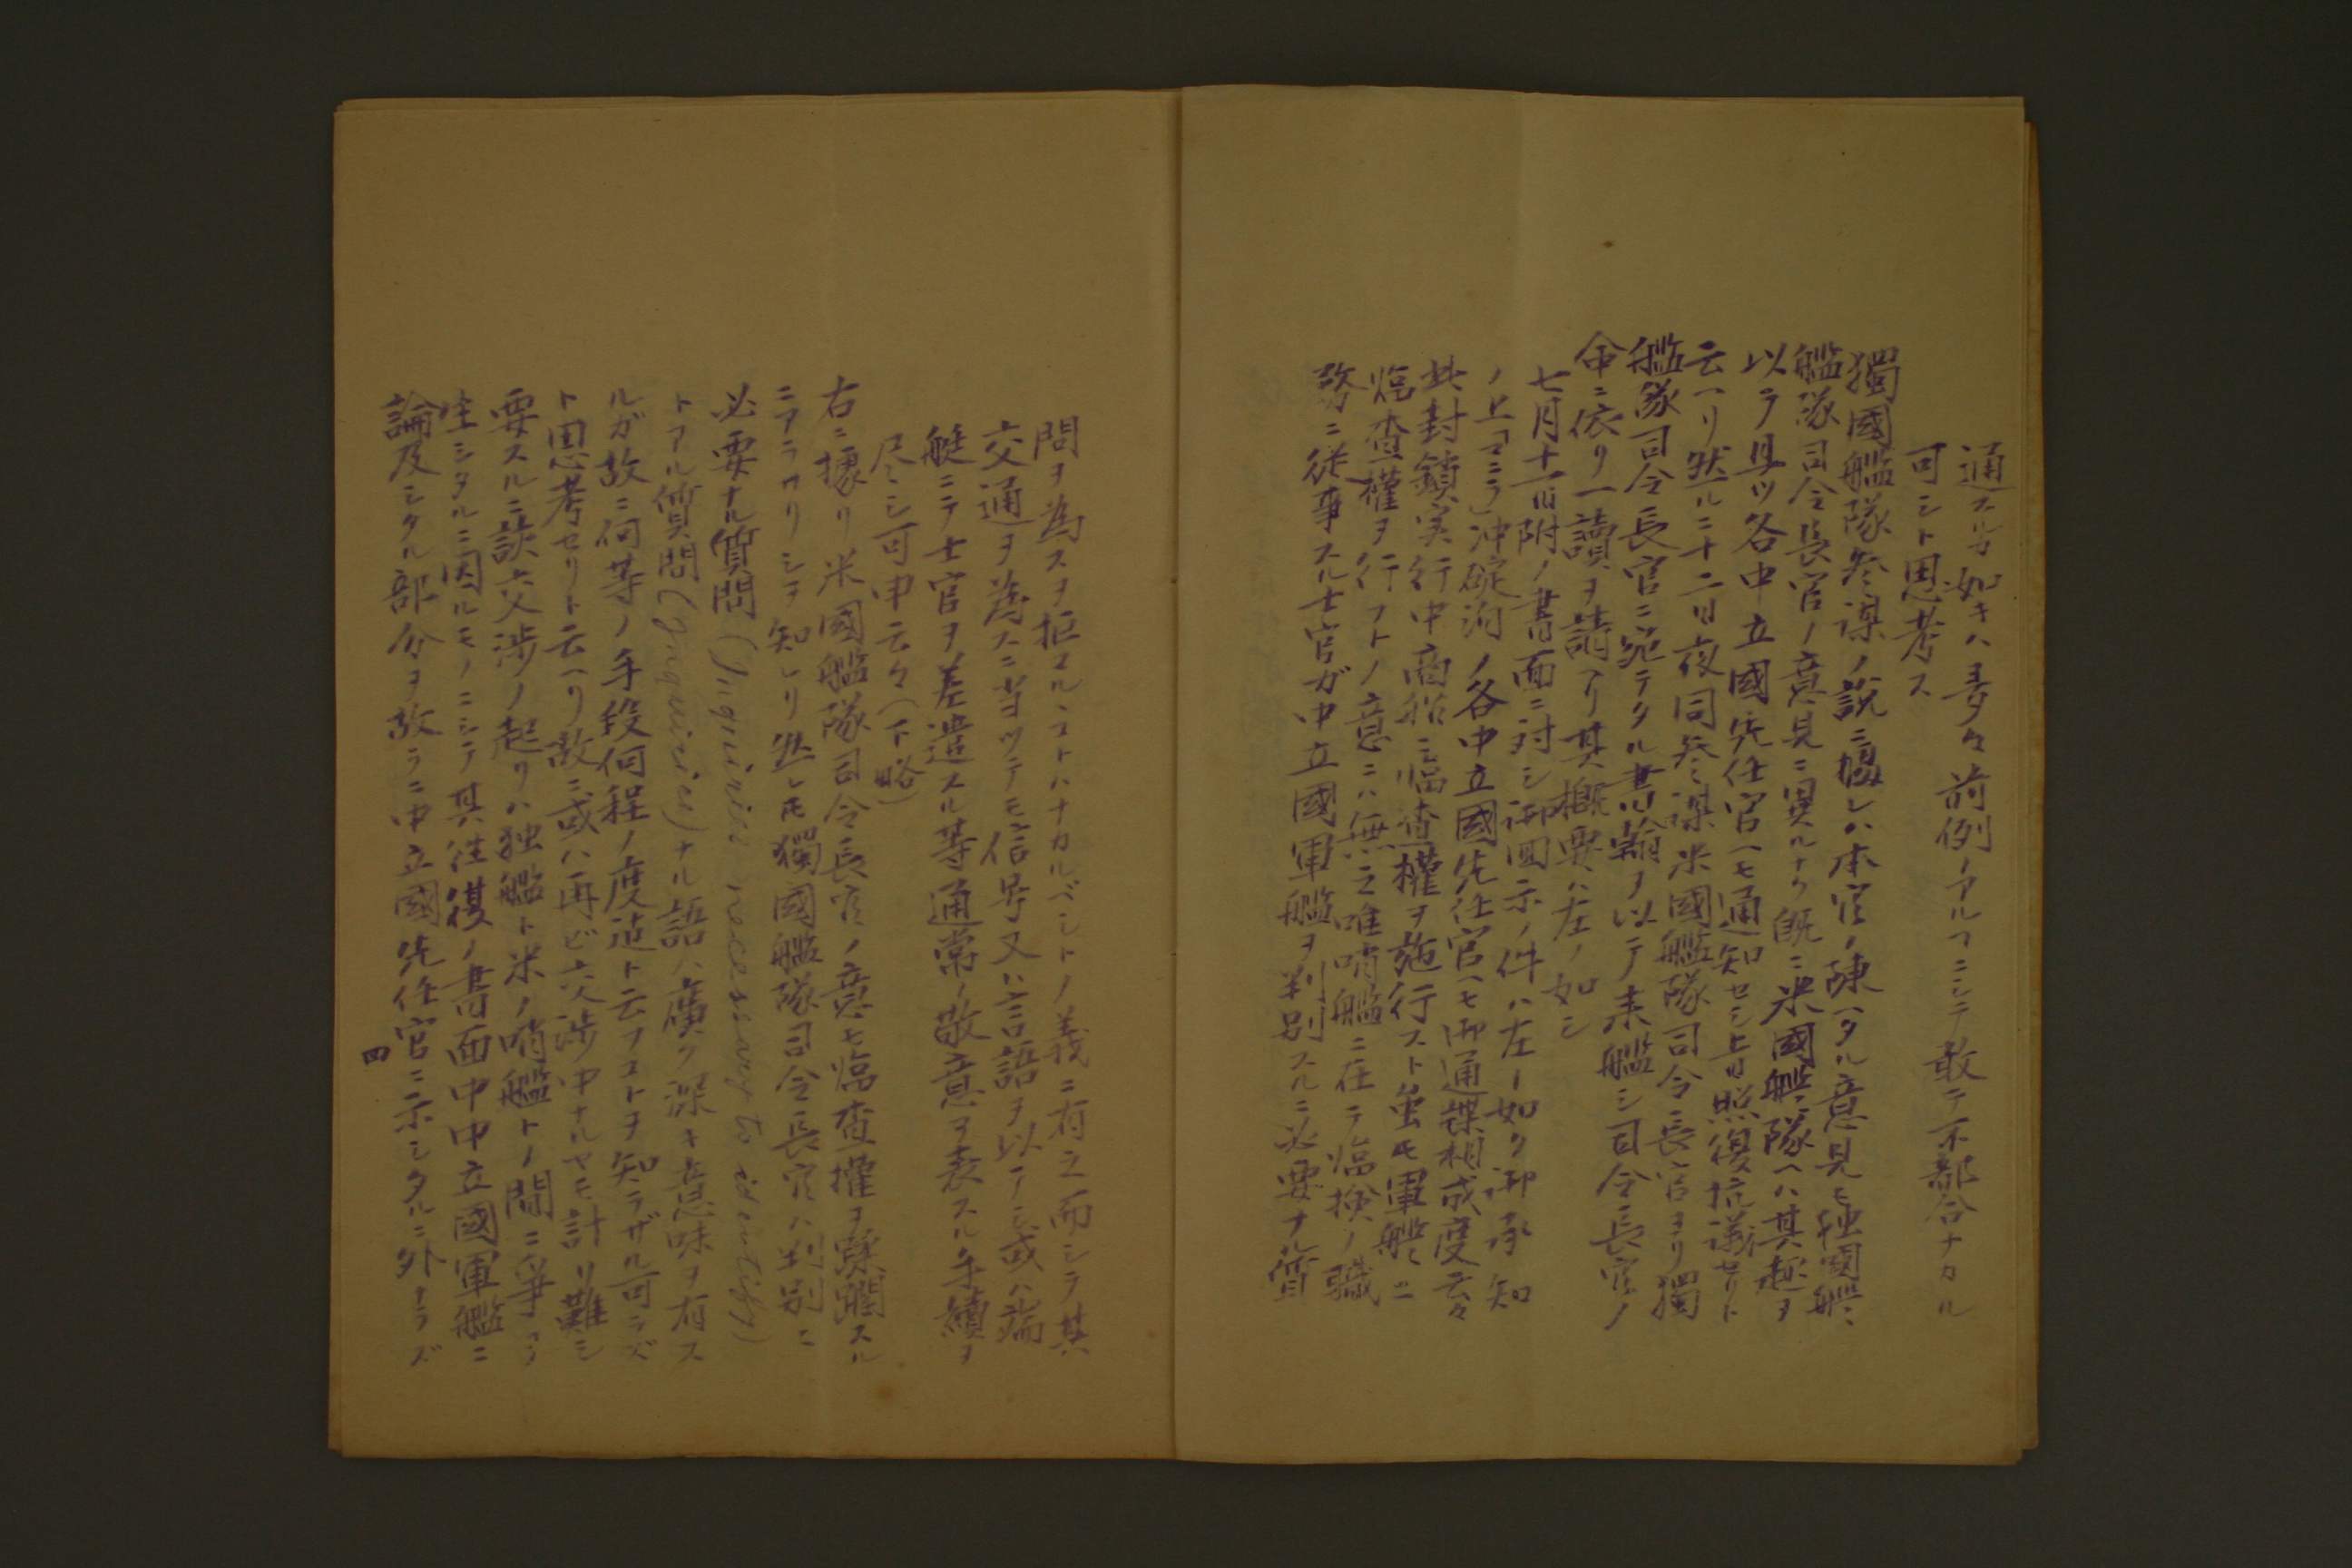 通スル如キハ多々前例ノアルヿニシテ敢テ不都合ナカル
可シト思考ス
獨國艦隊参謀ノ説ニ據レハ本官ノ陳ヘタル意見モ独國艦
艦隊司令長官ノ意見ニ異ルナク既ニ米國艦隊ヘハ其趣ヲ
以テ且ツ各中立國先任官ヘモ通知セシ旨照復抗議セリト
云ヘリ然ルニ十二日夜同参謀米國艦隊司令長官ヨリ獨
艦隊司令長官ニ宛テタル書翰ヲ以テ来艦シ司令長官ノ
命ニ依リ一讀ヲ請ヘリ其概要ハ左ノ如シ
七月十一日附ノ書面ニ対シ御回示ノ件ハ左ノ如ク御承知
ノ上「マニラ」沖碇泊ノ各中立國先任官ヘモ御通牒相成度云々
此封鎖実行中商船ニ臨査權ヲ施行スト虽モ軍艦ニ
臨査權ヲ行フトノ意ニハ無之唯哨艦ニ在テ臨検ノ職
務ニ従事スル士官ガ中立國軍艦ヲ判別スルニ必要ナル質
問ヲ為スヲ拒コルヽコトハナカルベシトノ義ニ有之而シテ其
交通ヲ為スニ当ツテモ信号又ハ言語ヲ以テシ或ハ端
艇ニテ士官ヲ差遣スル等通常ノ敬意ヲ表スル手續ヲ
尽シ可申云々(下略)
右ニ據リ米國艦隊司令長官ノ意モ臨査權ヲ蹂躙スル
ニアラサリシヲ知レリ然レ𪜈獨國艦隊司令長官ハ判別ニ
必要ナル質問(Inquiries necessary to identify)
トアル質問(Inquiries)ナル語ハ廣ク深キ意味ヲ有ス
ルガ故ニ何等ノ手段何程ノ度迠ト云フコトヲ知ラザル可ラズ
ト思考セリト云ヘリ故ニ或ハ再ビ交渉中ナルヤモ計リ難シ
要スルニ該交渉ノ起リハ独艦ト米ノ哨艦トノ間ニ事ヲ
生シタルニ因ルモノニシテ其往復ノ書面中中立國軍艦ニ
論及シタル部分ヲ故ラニ中立國先任官ニ示シタルニ外ナラズ
四